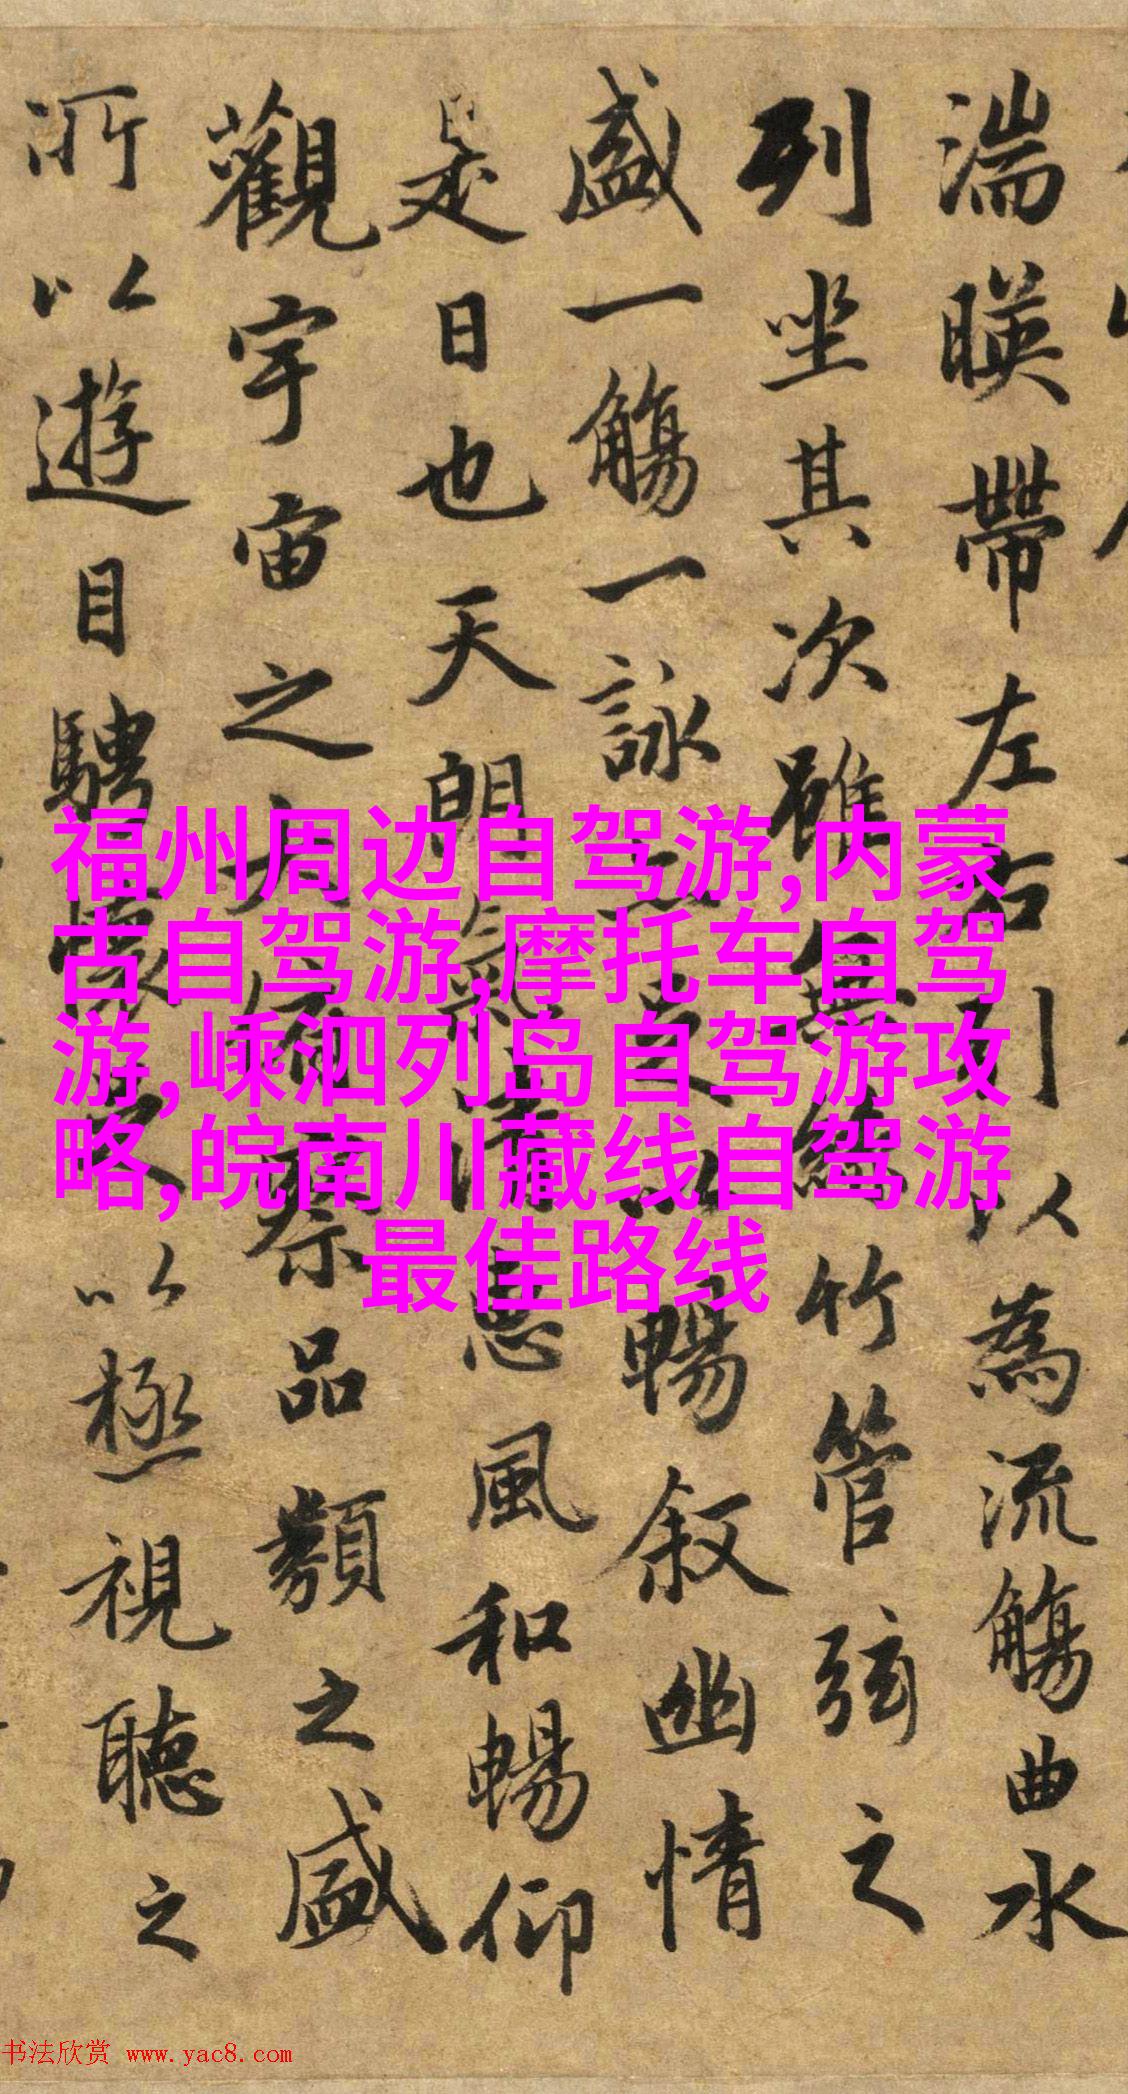 湍暎帶左右引以為流觴曲水
列坐其次雖無絲竹管弦之
盛一觴一詠亦足以暢叙幽情
是日也天朗氣清恵風和暢仰
觀宇宙之大俯察品類之盛
所以遊目騁懷足以極視聽之
福州周边自驾游,内蒙
古自驾游,摩托车自驾
游,嵊泗列岛自驾游攻
略,皖南川藏线自驾游
最佳路线
书法欣赏 www.yac8.com